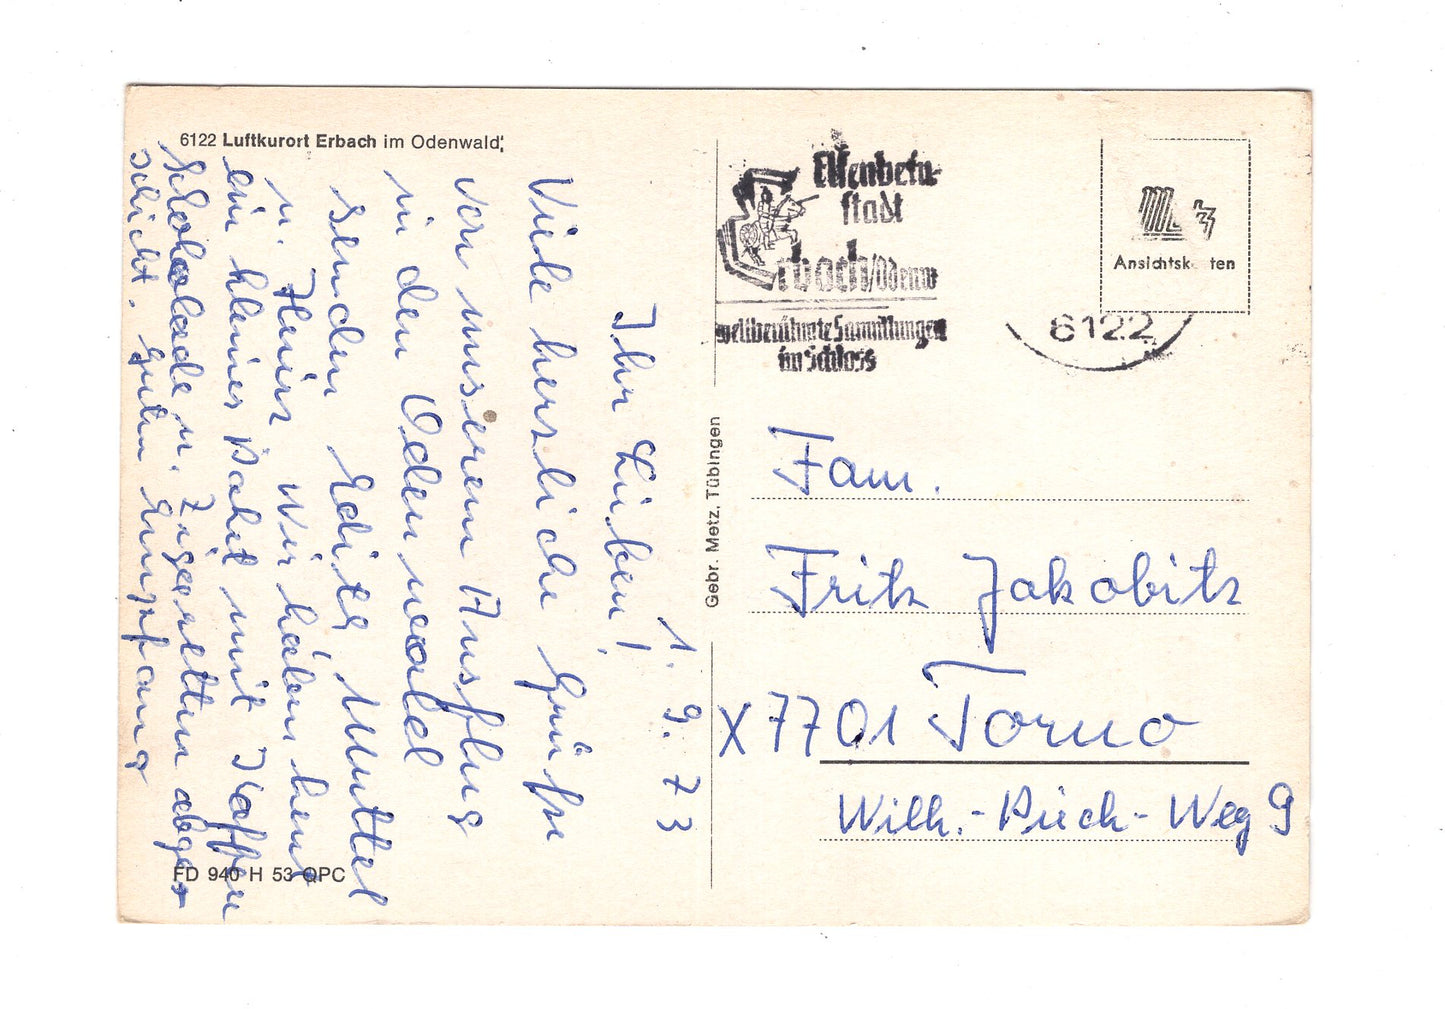 6122 Luftkurort Erbach im Odenwald
1. 9. 73
Ihr Lieben!
Viele herzliche Grüße
von unserem Ausflug
in den Odenwald
senden Edith, Muttel
u. Heinz Wir haben heut
ein kleines Paket mit Kaffee
Schokolade u. Zigaretten abge-
schickt. Guten Empfang
FD 940 H 53 QPC
Gebr. Metz, Tübingen
Elfenbein-
stadt
Erbach/Odenw
weltberühmte Sammlungen
im Schloss
Ansichtskarten
6122
Fam.
Fritz Jakobitz
X7701 Torno
Wilh.-Pieck-Weg 9